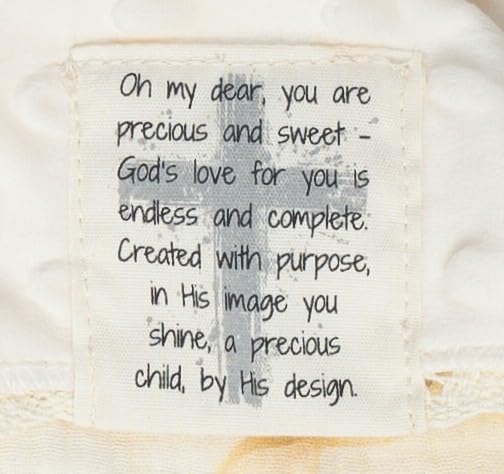 Oh my dear, you are
precious and sweet -
God's love for you is
endless and complete.
Created with purpose,
in His image you
shine, a precious
child, by His design.